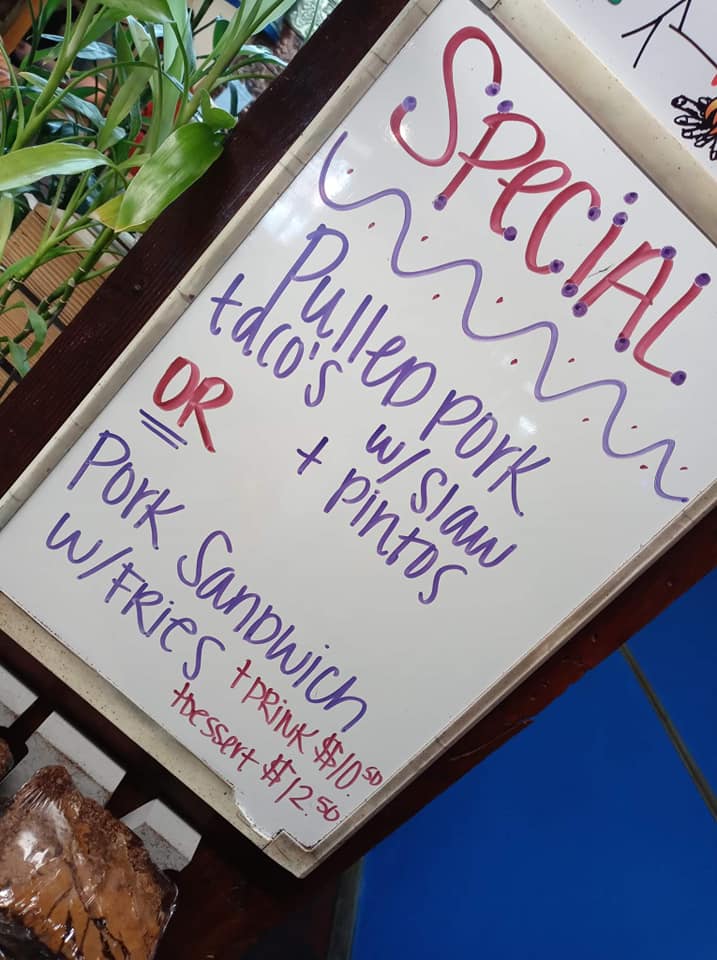 SPECIAL
PullED PORK
taco's w/ slaw
+ pintos
OR
Pork Sandwich
w/ FRIES
+ DRINK $10.50
+ Dessert $12.50